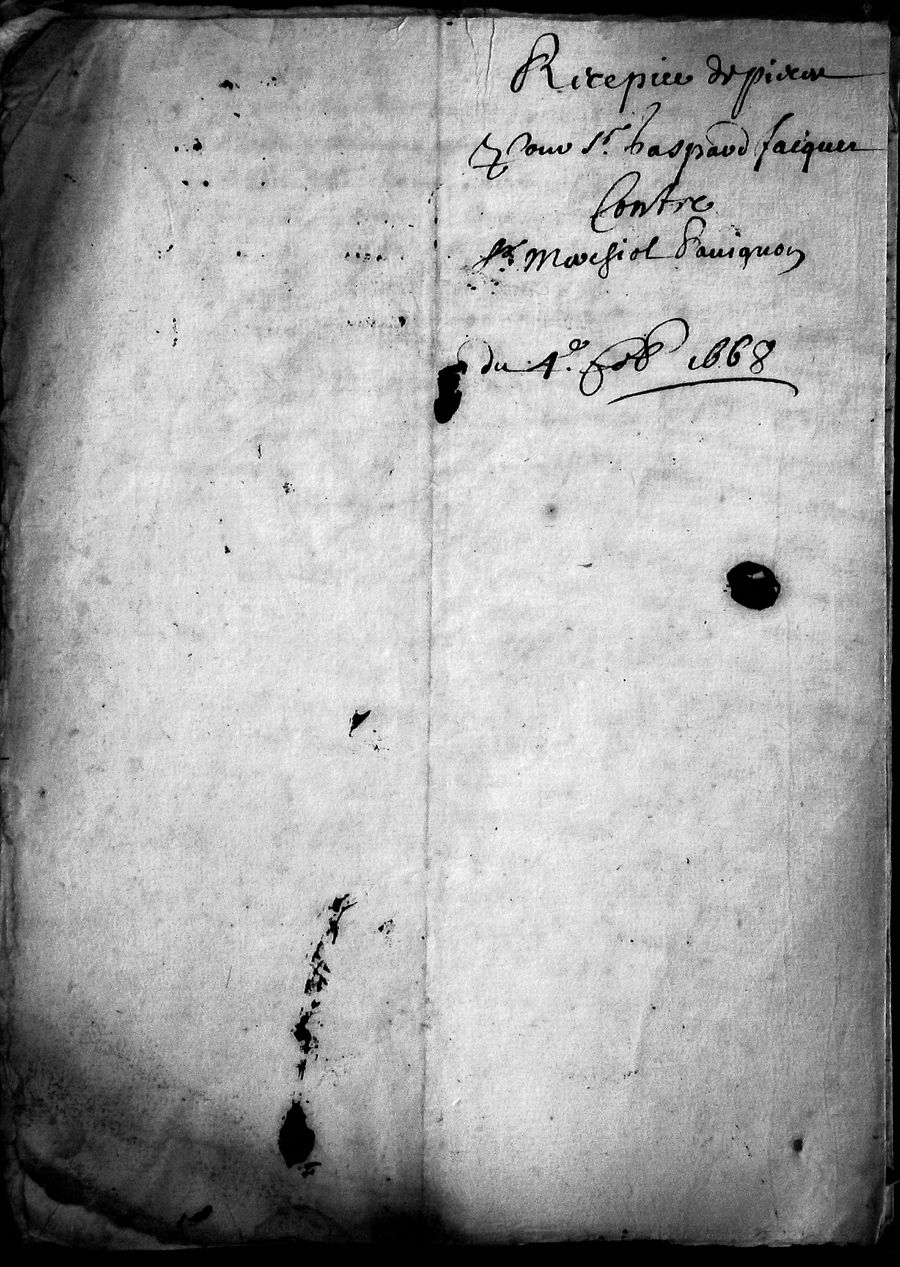 Recepice de pieces
Pour Sr. Gaspard Jacquer
Contre
Sr. Marchiol
du 4e. feb 1668